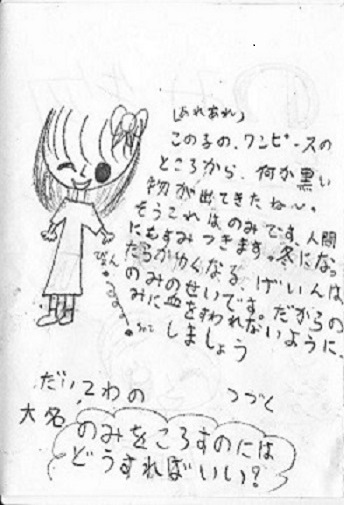 (あれあれ)
この子の、ワンピースの
ところから、何か黒い
物が出てきたね〜。
そうこれはのみです。人間
にもすみつきます。冬になっ
たらかゆくなる、げいんは
のみのせいです。だからの
みに血をすわれないように、
しましょう
ぴょん
だい2わの
つづく
大名
のみをころすのには
どうすればいい?